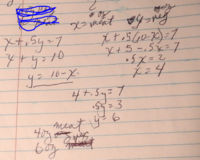 x = meat
x + .5y = 7
x + y = 10
y = 10-x
x + .5(10-x) = 7
x + 5 - .5x = 7
.5x = 2
x = 4
4 + .5y = 7
.5y = 3
y = 6
4oz meat
6oz